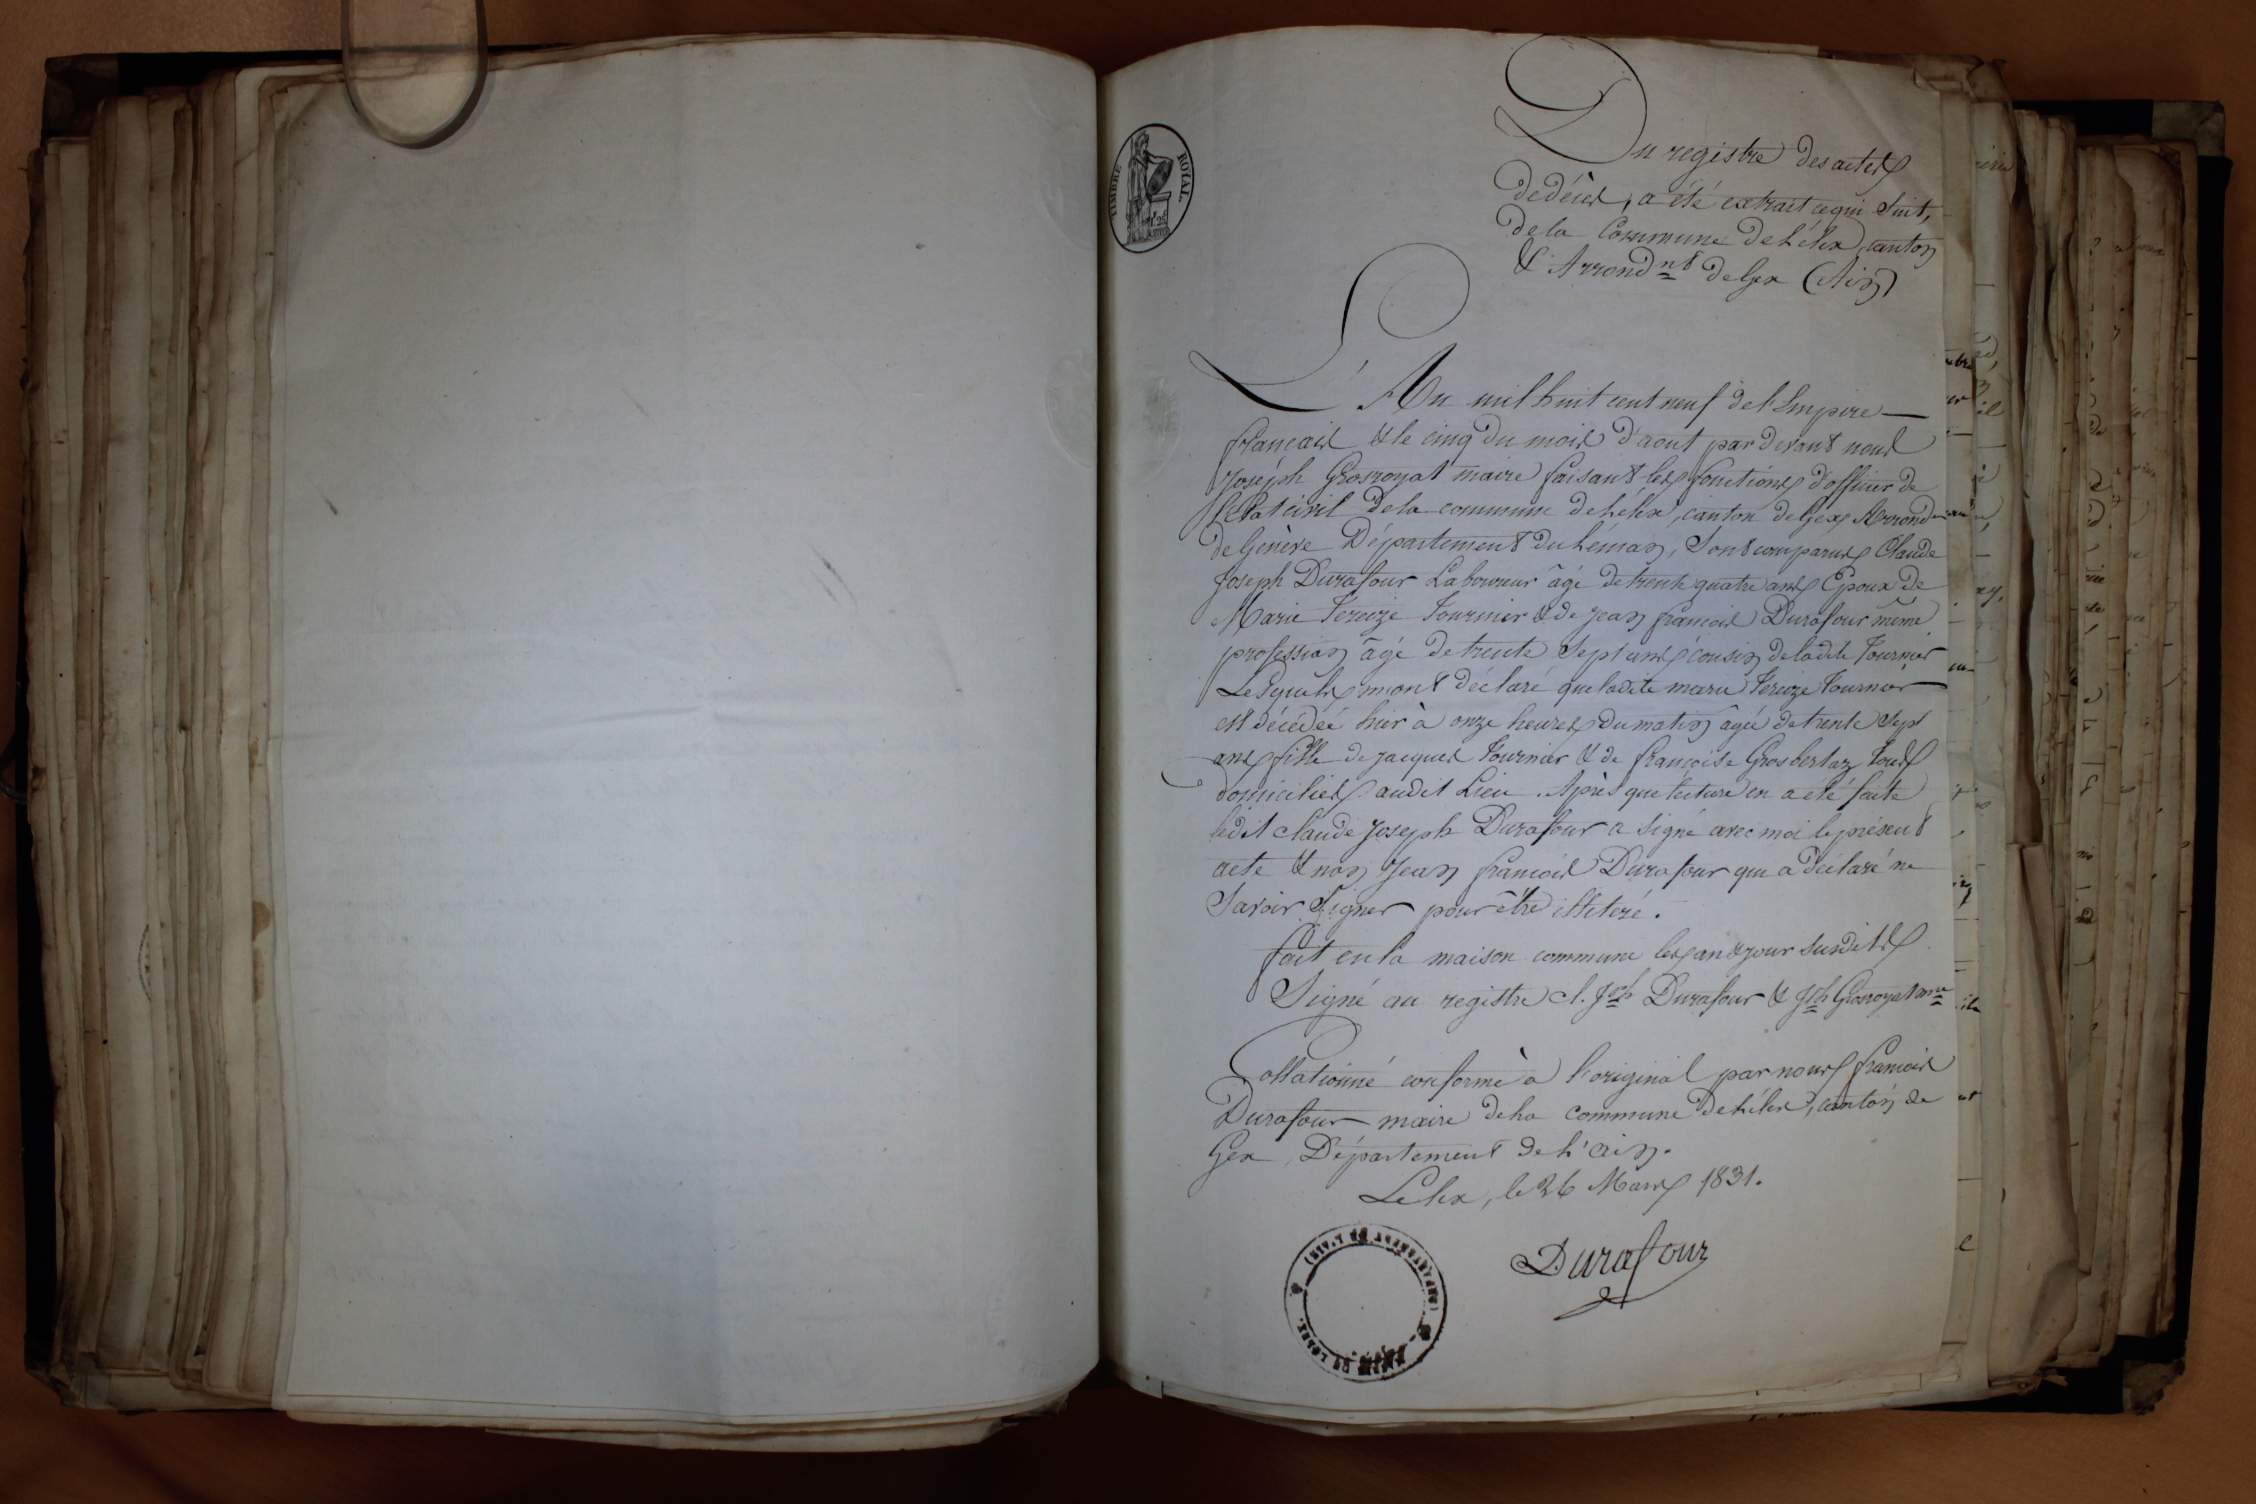 TIMBRE ROYAL
Du registre des actes
de décès, a été extrait ce qui suit,
de la Commune de Lélex, canton
& Arrond.nt de Gex (Ain)
L'An mil huit cent neuf de l'Empire
français & le cinq du mois d'aout par devant nous
Joséph Grosroyat maire faisant les fonctions d'officier de
l'état civil de la commune de Lélex, canton de Gex, Arrond.
de Genève Département du Léman, sont comparus Claude
Joseph Durafour Laboureur âgé de trente quatre ans Epoux de
Marie Tereize Tournier & de Jean françois Durafour même
profession âgé de trente sept ans cousin de ladite Tournier
Lesquels m'ont déclaré que ladite marie Tereize Tournier
est décédée hier à onze heures du matin âgée de trente sept
ans fille de jacques Tournier & de françoise Grosbertaz tous
domiciliés audit Lieu. Après que lecture en a été faite
ledit claude Joseph Durafour a signé avec moi le présent
acte & non Jean françois Durafour qui a déclaré ne
Savoir Signer pour être illiteré.
fait en la maison commune les an & jour susdits
Signé au registre Cl. Jph Durafour & Jph Grosroyat mre
Collationné conforme à l'original par nous françois
Durafour maire de la commune de Lélex, canton de
Gex Département de L'ain.
Lelex, le 26 Mars 1831.
Durafour
MAIRIE DE LELEX. (DEPARTEMENT DE L'AIN)